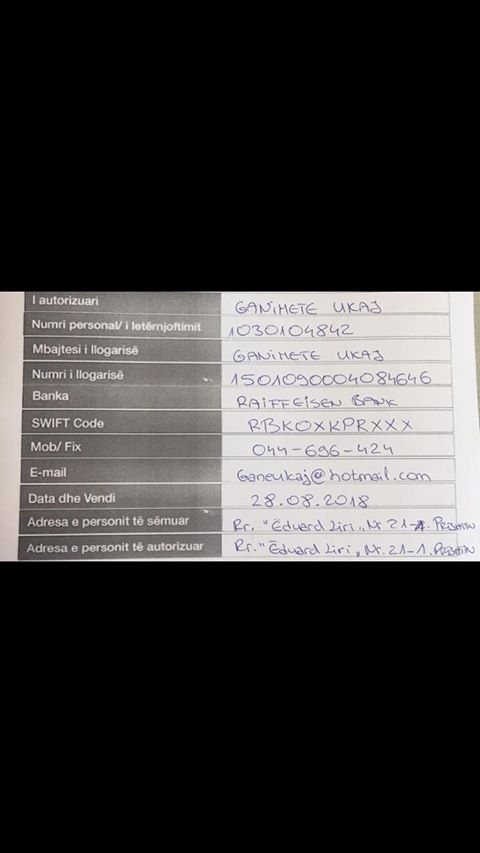 I autorizuari GANIMETE UKAJ
Numri personal/ i letërnjoftimit 1030104842
Mbajtesi i llogarisë GANIMETE UKAJ
Numri i llogarisë 1501090004084646
Banka RAIFFEISEN BANK
SWIFT Code RBKOXKPRXXX
Mob/ Fix 044-696-424
E-mail Ganeukaj@hotmail.com
Data dhe Vendi 28.08.2018
Adresa e personit të sëmuar Rr. "Eduard Liri" Nr 21-1. PRISHTIN
Adresa e personit të autorizuar Rr. "Eduard Liri" Nr. 21-1. PRISHTIN